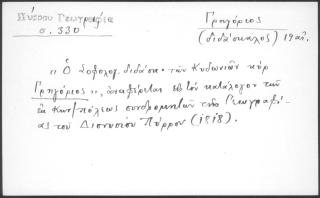 Πύρρου Γεωγραφία
σ. 330
Γρηγόριος
(διδάσκαλος) 19 αἰ.
"Ὁ Σοφολογ. διδάσκ. τῶν Κυδωνιῶν κύρ
Γρηγόριος", ἀναφέρεται εἰς τὸν κατάλογον τῶν
ἐκ Κων/πόλεως συνδρομητῶν τῆς Γεωγραφί-
ας τοῦ Διονυσίου Πύρρου (1818).